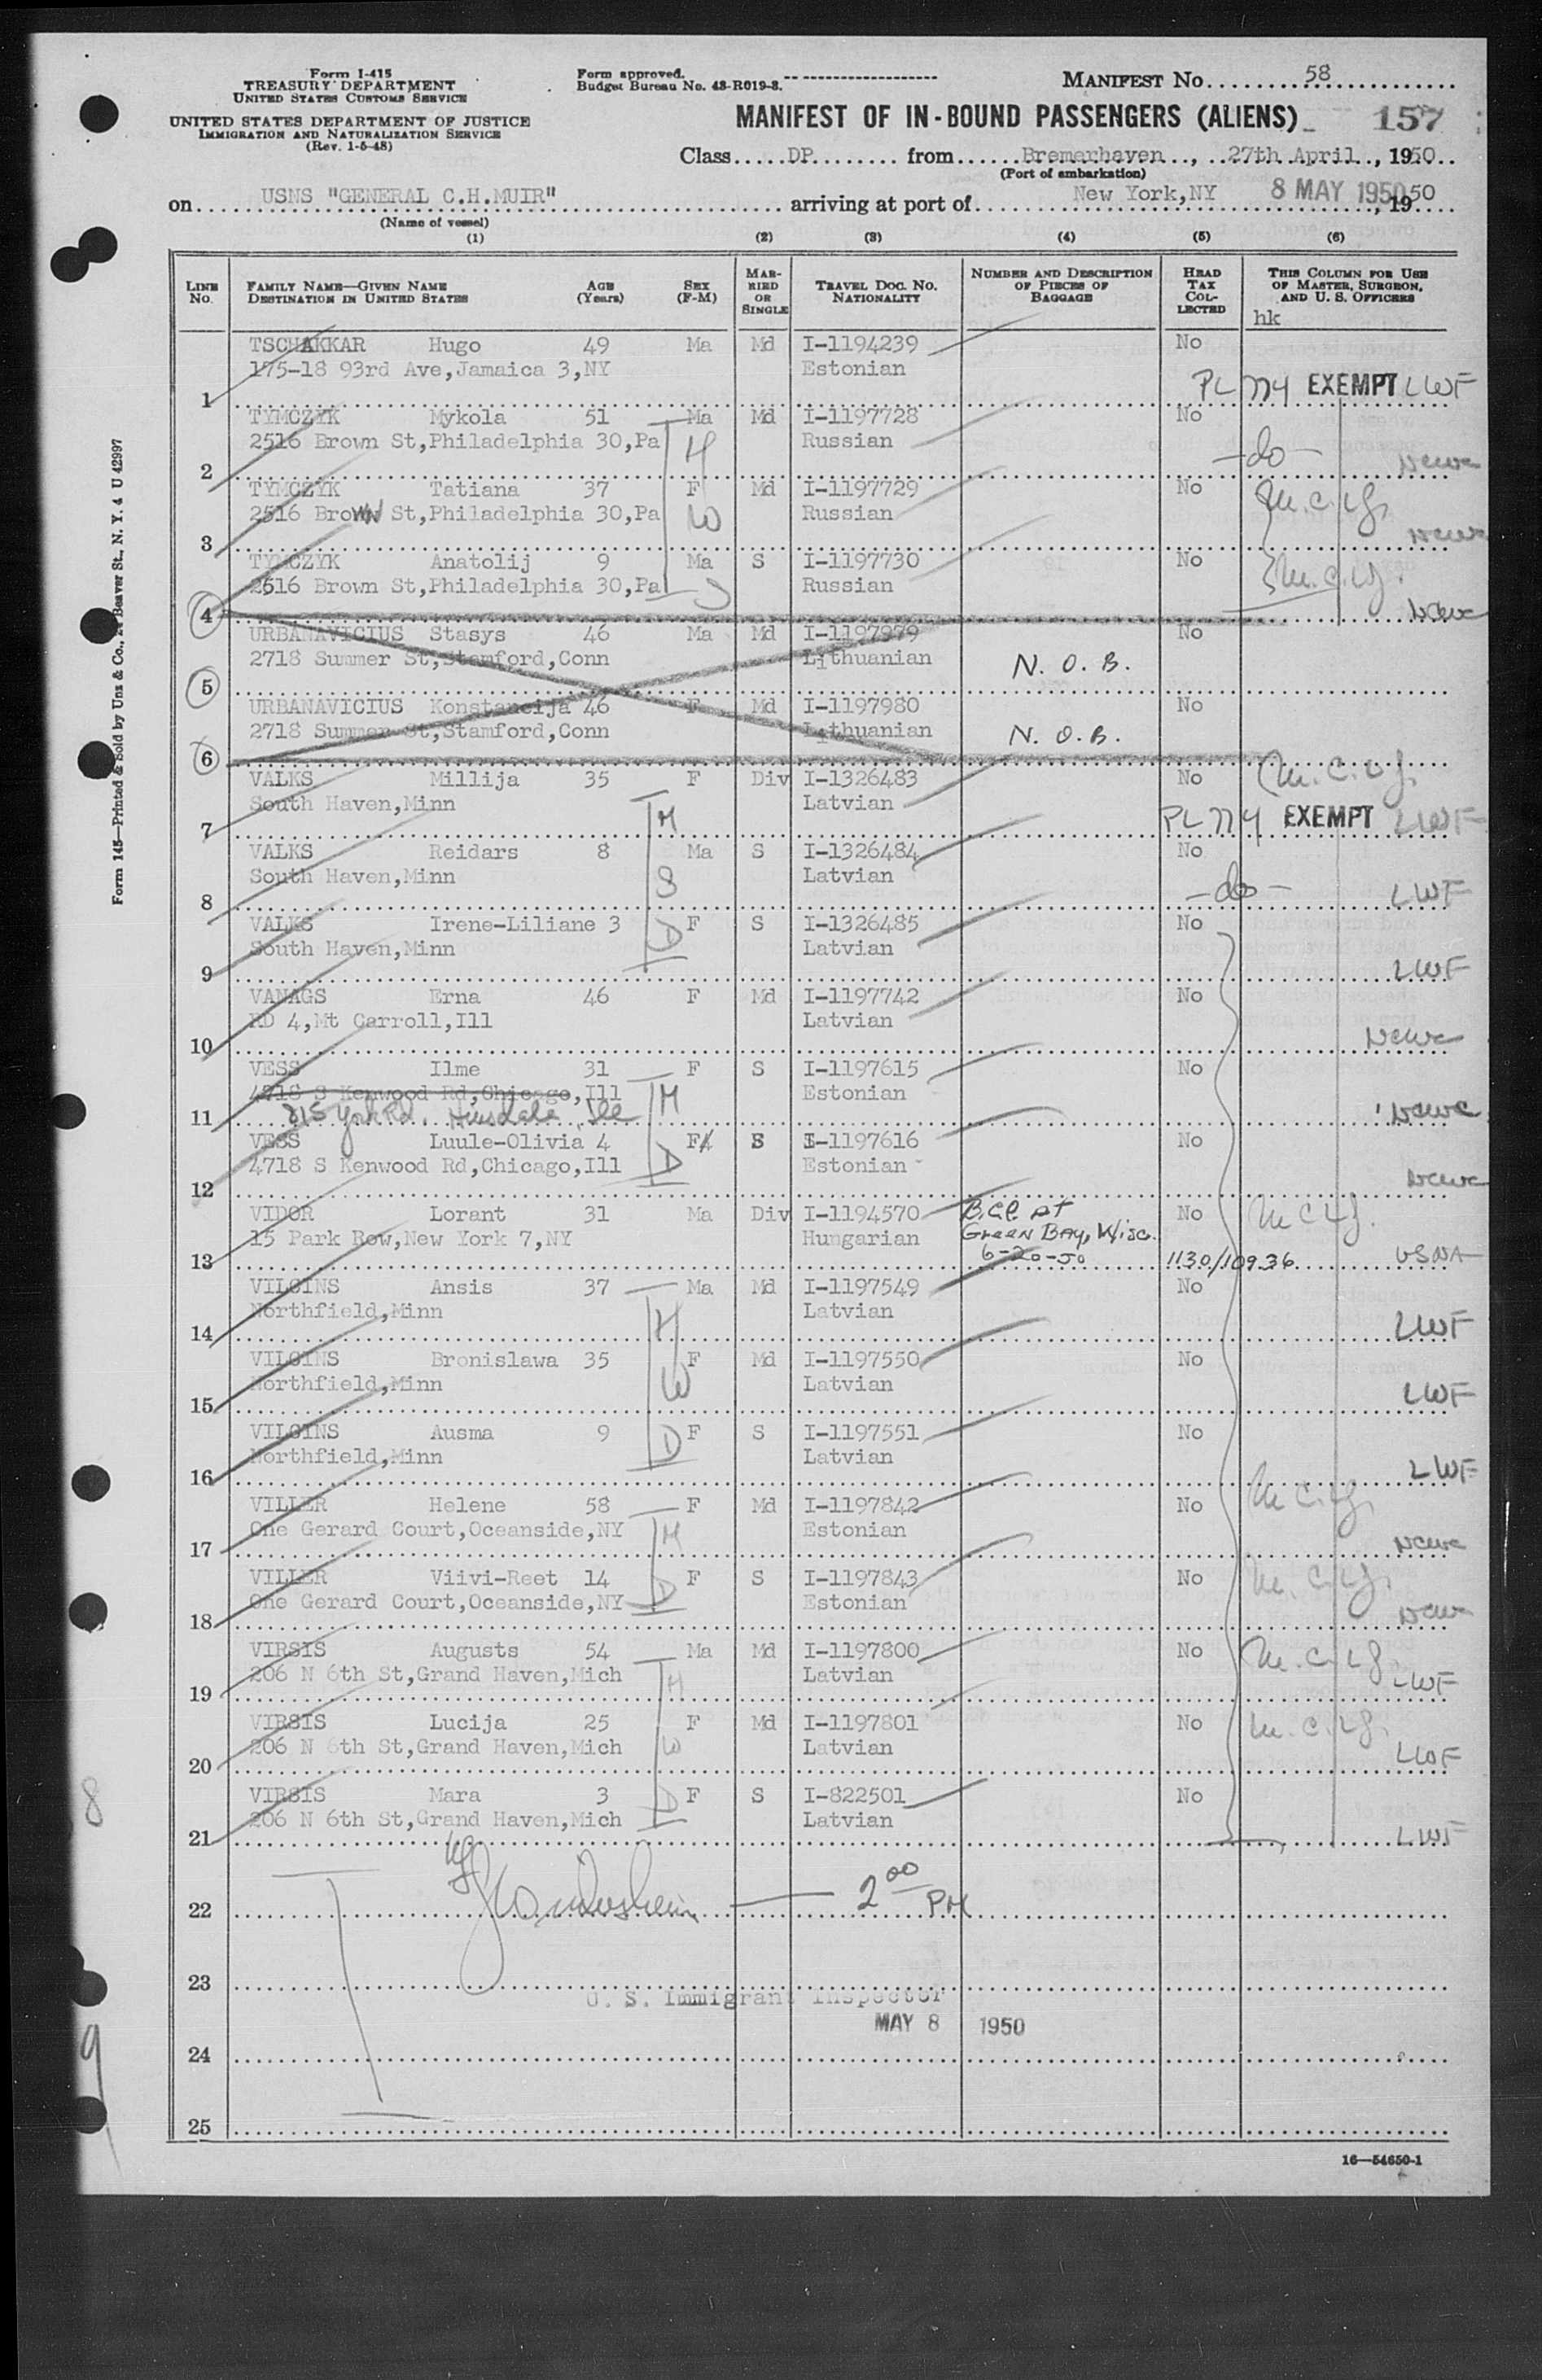 Form I-415
TREASURY DEPARTMENT
UNITED STATES CUSTOMS SERVICE
UNITED STATES DEPARTMENT OF JUSTICE
IMMIGRATION AND NATURALIZATION SERVICE
(Rev. 1-5-48)
Form approved.
Budget Bureau No. 43-R019-3.
MANIFEST No. 58
MANIFEST OF IN-BOUND PASSENGERS (ALIENS) 157
Class DP from Bremerhaven, 27th April, 1950
(Port of embarkation)
on USNS "GENERAL C.H.MUIR" arriving at port of New York,NY 8 MAY 1950, 1950
(Name of vessel)
(1) (2) (3) (4) (5) (6)
LINE No. FAMILY NAME—GIVEN NAME DESTINATION IN UNITED STATES AGE (Years) SEX (F-M) MARRIED OR SINGLE TRAVEL DOC. NO. NATIONALITY NUMBER AND DESCRIPTION OF PIECES OF BAGGAGE HEAD TAX COLLECTED THIS COLUMN FOR USE OF MASTER, SURGEON, AND U. S. OFFICERS
hk
TSCHAKKAR Hugo 49 Ma Md I-1194239 No
175-18 93rd Ave,Jamaica 3,NY Estonian
1 PL 774 EXEMPT LWF
TYMCZYK Mykola 51 Ma Md I-1197728 No
2516 Brown St,Philadelphia 30,Pa H Russian
2 -do- NCWC
TYMCZYK Tatiana 37 F Md I-1197729 No
2516 Brown St,Philadelphia 30,Pa W Russian
3 NCWC
TYMCZYK Anatolij 9 Ma S I-1197730 No
2516 Brown St,Philadelphia 30,Pa S Russian
4 NCWC
URBANAVICIUS Stasys 46 Ma Md I-1197979 No
2718 Summer St,Stamford,Conn Lithuanian N.O.B.
5
URBANAVICIUS Konstancija 46 F Md I-1197980 No
2718 Summer St,Stamford,Conn Lithuanian N.O.B.
6
VALKS Millija 35 F Div I-1326483 No
South Haven,Minn Latvian
7 M PL 774 EXEMPT LWF
VALKS Reidars 8 Ma S I-1326484 No
South Haven,Minn S Latvian
8 -do- LWF
VALKS Irene-Liliane 3 D F S I-1326485 No
South Haven,Minn Latvian
9 LWF
VANAGS Erna 46 F Md I-1197742 No
RD 4,Mt Carroll,Ill Latvian
10 NCWC
VESS Ilme 31 F S I-1197615 No
4718 S Kenwood Rd,Chicago,Ill M Estonian
11 215 York Rd. Hinsdale Ill NCWC
VESS Luule-Olivia 4 F S I-1197616 No
4718 S Kenwood Rd,Chicago,Ill D Estonian
12 NCWC
VIDOR Lorant 31 Ma Div I-1194570 B.C.P. At No
15 Park Row,New York 7,NY Hungarian Green Bay, Wisc.
13 6-20-50 1130/10936 USNA
VILCINS Ansis 37 Ma Md I-1197549 No
Northfield,Minn H Latvian
14 LWF
VILCINS Bronislawa 35 F Md I-1197550 No
Northfield,Minn W Latvian
15 LWF
VILCINS Ausma 9 F S I-1197551 No
Northfield,Minn D Latvian
16 LWF
VILLER Helene 58 F Md I-1197842 No
One Gerard Court,Oceanside,NY M Estonian
17 NCWC
VILLER Viivi-Reet 14 F S I-1197843 No
One Gerard Court,Oceanside,NY D Estonian
18 NCWC
VIRSIS Augusts 54 Ma Md I-1197800 No
206 N 6th St,Grand Haven,Mich H Latvian
19 LWF
VIRSIS Lucija 25 F Md I-1197801 No
206 N 6th St,Grand Haven,Mich W Latvian
20 LWF
VIRSIS Mara 3 D F S I-822501 No
206 N 6th St,Grand Haven,Mich Latvian
21 LWF
22 2 00 PM
23
U. S. Immigrant Inspector
MAY 8 1950
24
25
16—54650-1
Form 145—Printed & Sold by Unz & Co., Beaver St., N. Y. 4 U 42997
8
9